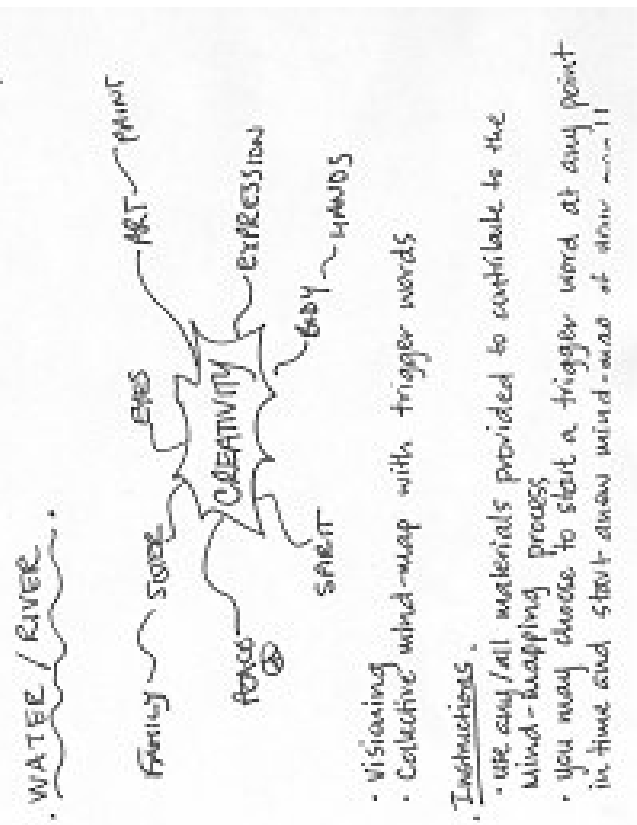 · WATER / RIVER
FAMILY
EYES
ART
PAINT
CREATIVITY
EXPRESSION
PEACE
SPIRIT
BODY
HANDS
· Visioning
· Collective mind-map with trigger words
· Instructions.
· use any/all materials provided to contribute to the
mind-mapping process
· you may choose to start a trigger word at any point
in time and start a new mind-map